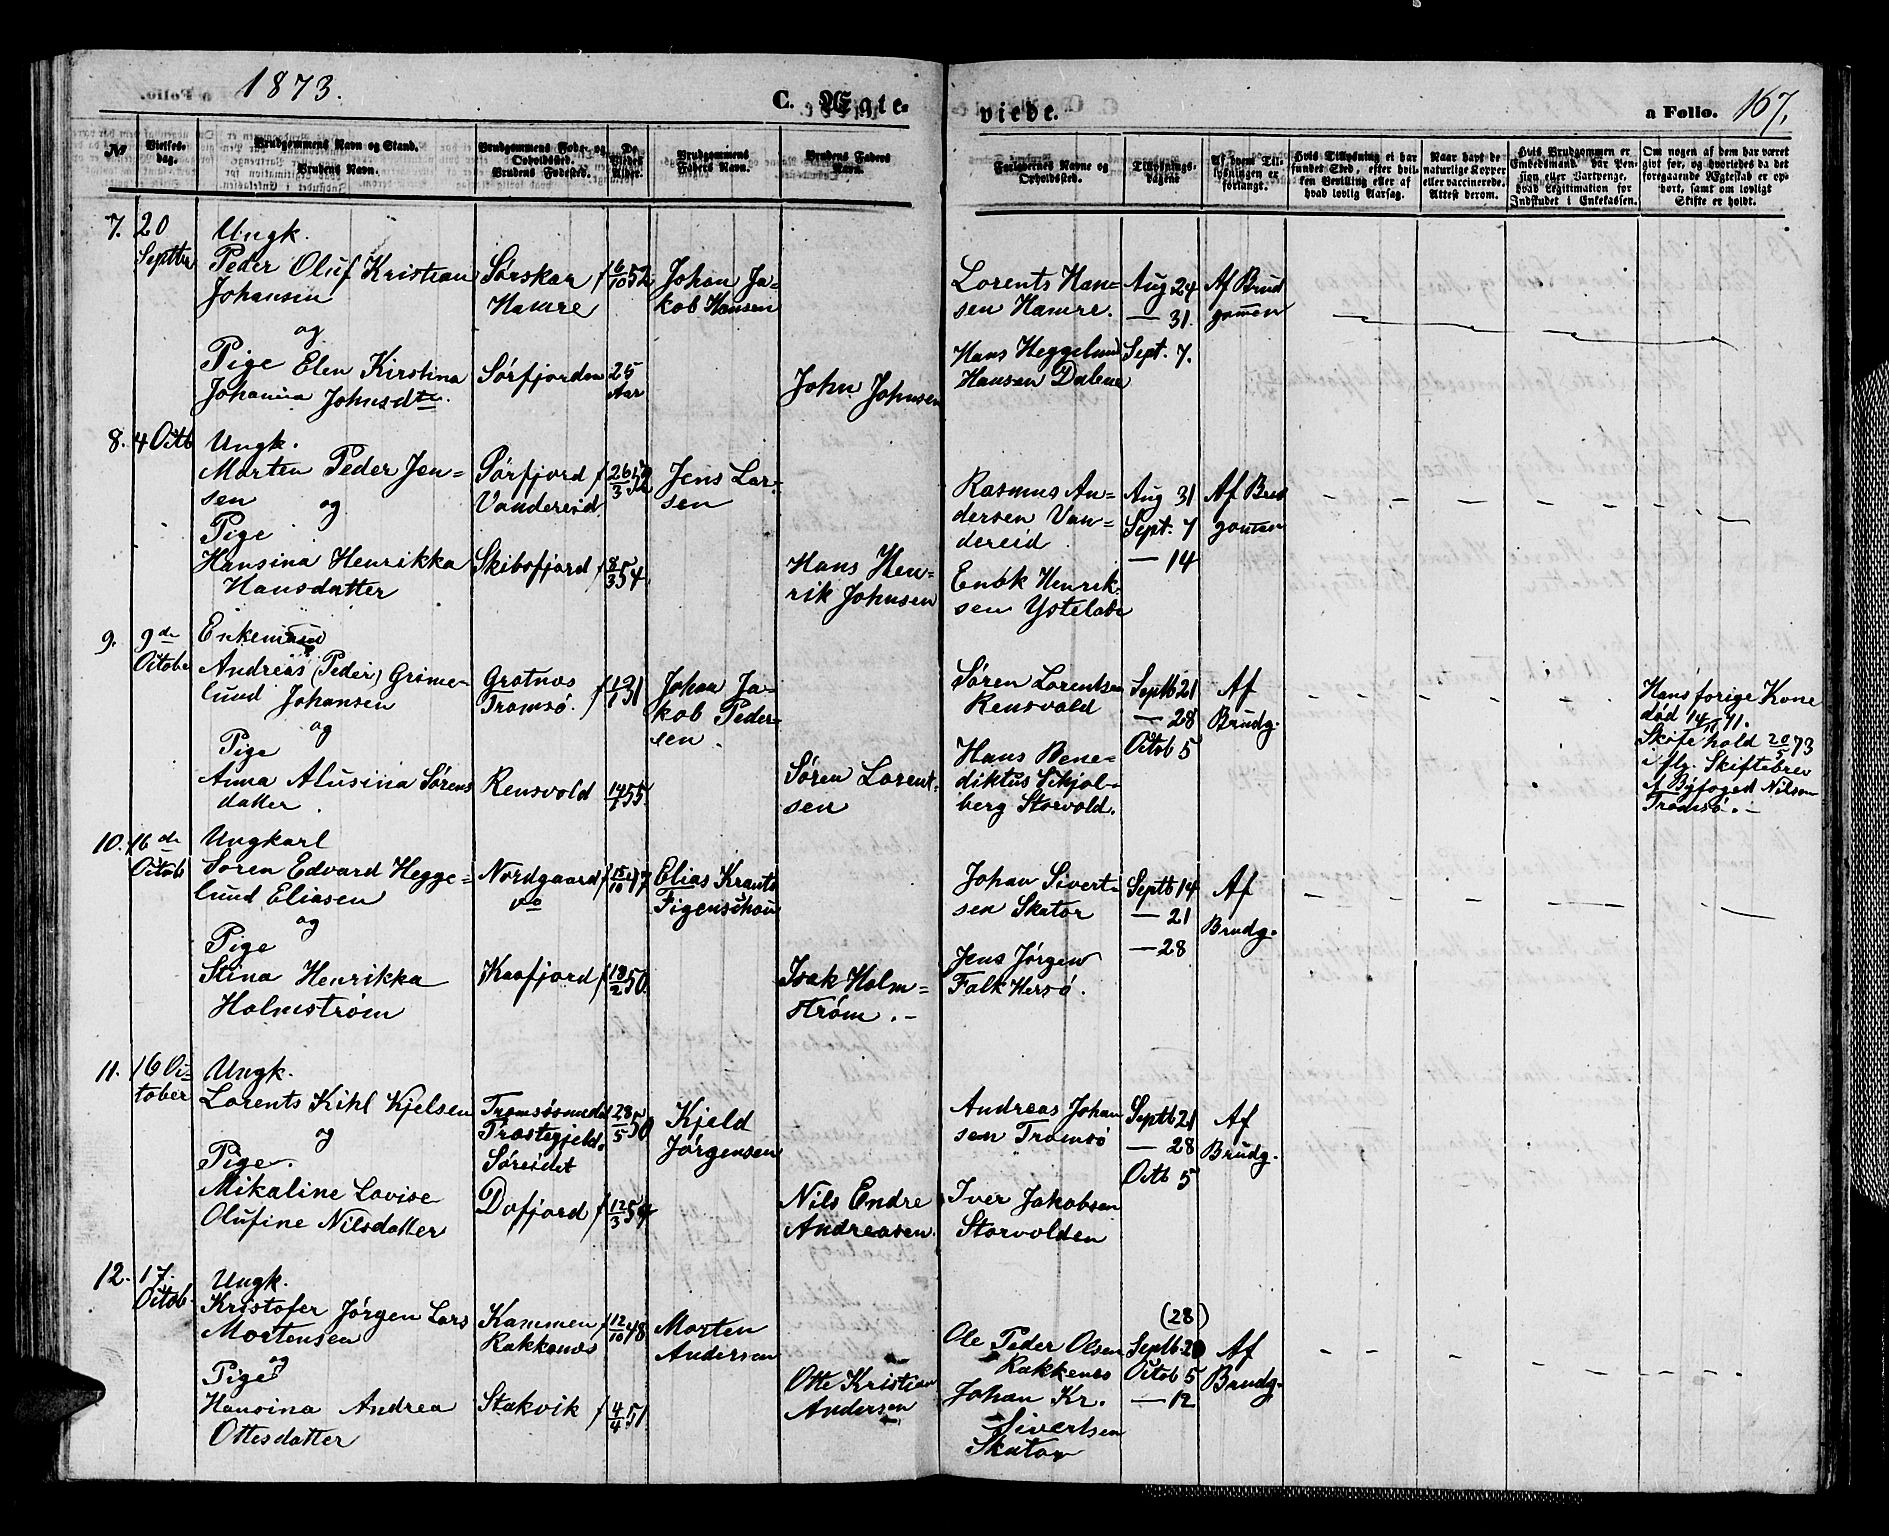 1873.
C. Ægte-
viede.
a Folio. 167.
No
Vielses-
dag.
Brudgommens Navn og Stand.
Brudens Navn.
Brudgommens Føde- og
Opholdssted.
Brudens Fødested.
De
Viedes
Alder.
Brudgommens
Faders Navn.
Brudens Faders
Navn.
Forlovernes Navne og
Opholdssted.
Tillysnings-
dagene
Af hvem Til-
lysningen er
forlangt.
Hvis Tillysning ei har
fundet Sted, efter hvil-
ken Bevilling eller af
hvad lovlig Aarsag.
Naar havt de
naturlige Kopper
eller vaccinerede.
Attest derom.
Hvis Brudgommen er
Embedsmand har Pen-
sion eller Vartpenge,
hvad Legitimation for
Indskudet i Enkekassen.
Om nogen af dem har været
gift før, og hvorledes da det
foregaaende Ægteskab er op-
hørt, samt om lovligt
Skifte er holdt.
7. 20
Septbr
Ungk.
Peder Oluf Kristian
Johansen
og
Pige Elen Kirstina
Johanna Johnsdtr.
Sørskar
Hamre
Sørfjorden
f 6/10 52
25
Aar
Johan Ja-
kob Hansen
John Johnsen
Lorents Han-
sen Hamre.
Hans Heggelund
Hansen Dalene
Aug 24
— 31.
Sept. 7.
Af Brud
gomen
8. 4 Octb
Ungk.
Morten Peder Jen-
sen
og
Pige
Hansina Henrikka
Hansdatter
Sørfjord
Vandereid
Skibofjord
f 26/3 52
f 8/3 54.
Jens Lar-
sen
Hans Hen-
rik Johnsen
Rasmus An-
dersen Van-
dereid
Enok Henrik-
sen Ystelabe
Aug 31
Sept. 7
— 14
Af Brud
gomen
9. 9de
Octobr
Enkemand
Andreas (Peder) Grøne-
lund Johansen
og
Pige
Anna Alusina Sørens
datter
Grøtnes
Tromsø.
Rensvold
f 1/7 31
14/6 55.
Johan Ja-
kob Peder-
sen.
Søren Lorent-
sen
Søren Lorentsen
Rensvold
Hans Bene-
diktus Schjel-
berg Storvold.
Septb 21
— 28
Octob 5
Af
Brudg.
Hans forige Kone
død 14/11 71.
Skifte hold 20/5 73
iflg. Skiftebrev
af Byfoged Nilsen
Tromsø. —
10. 16de
Octob
Ungkarl
Søren Edvard Hegge-
lund Eliasen
og
Pige
Stina Henrikka
Holmstrøm
Nordgaard
vo
Kaafjord
f 15/10 47
f 18/2 50.
Elias Krants
Figenschou
Isak Holm-
strøm. —
Johan Sivert-
sen Skator
Jens Jørgen
Falk Hersø.
Septb 14
— 21
— 28
Af
Brudg.
11. 16 Oc-
tober
Ungk.
Lorents Kihl Kjelsen
og
Pige.
Mikaline Lovise
Olufine Nilsdatter
Tromsøsundet
Prestegjeld.
Søreidet
Dafjord
28/5 50
f 12/3 54
Kjeld
Jørgensen
Nils Endre
Andreasen.
Andreas Johan
sen Tromsø
Iver Jakobsen
Storvolden
Septb 21
— 28
Octb 5
Af
Brudg.
12. 17.
Octob.
Ungk.
Kristofer Jørgen Lars
Mortensen
og
Pige
Hansina Andrea
Ottesdatter
Kammen
Rakkenes
Stakvik
f 12/10 48
f 4/4 51.
Morten
Andersen
Otte Kristian
Andersen
Ole Peder Olsen
Rakkenes
Johan Kr.
Sivertsen
Skator
(28)
Septb. 2
Octob 5
— 12
Af
Brudg.